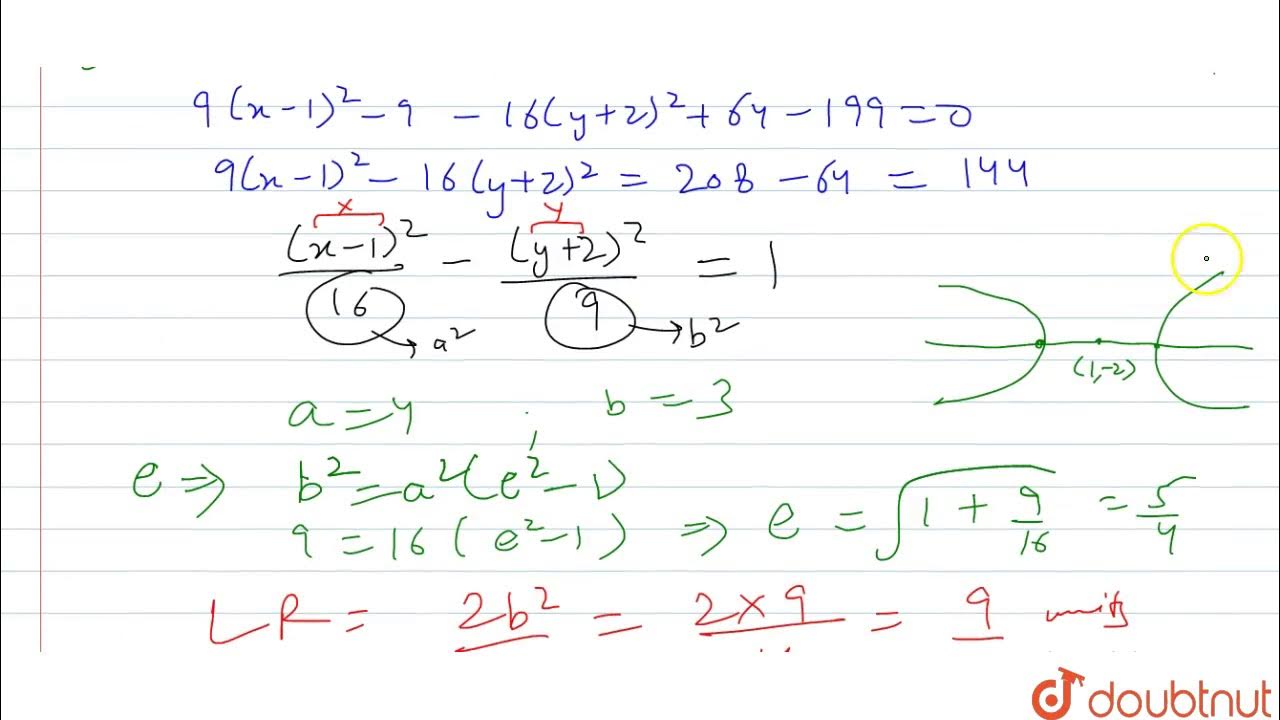 9(x-1)² - 9 - 16(y+2)² + 64 - 199 = 0
9(x-1)² - 16(y+2)² = 208 - 64 = 144
x y
(x-1)²/16 - (y+2)²/9 = 1
→ a² → b²
(1,-2)
a = 4 , b = 3
e ⇒ b² = a²(e² - 1)
9 = 16(e² - 1) ⇒ e = √(1 + 9/16) = 5/4
LR = 2b² = 2×9 = 9 units
doubtnut